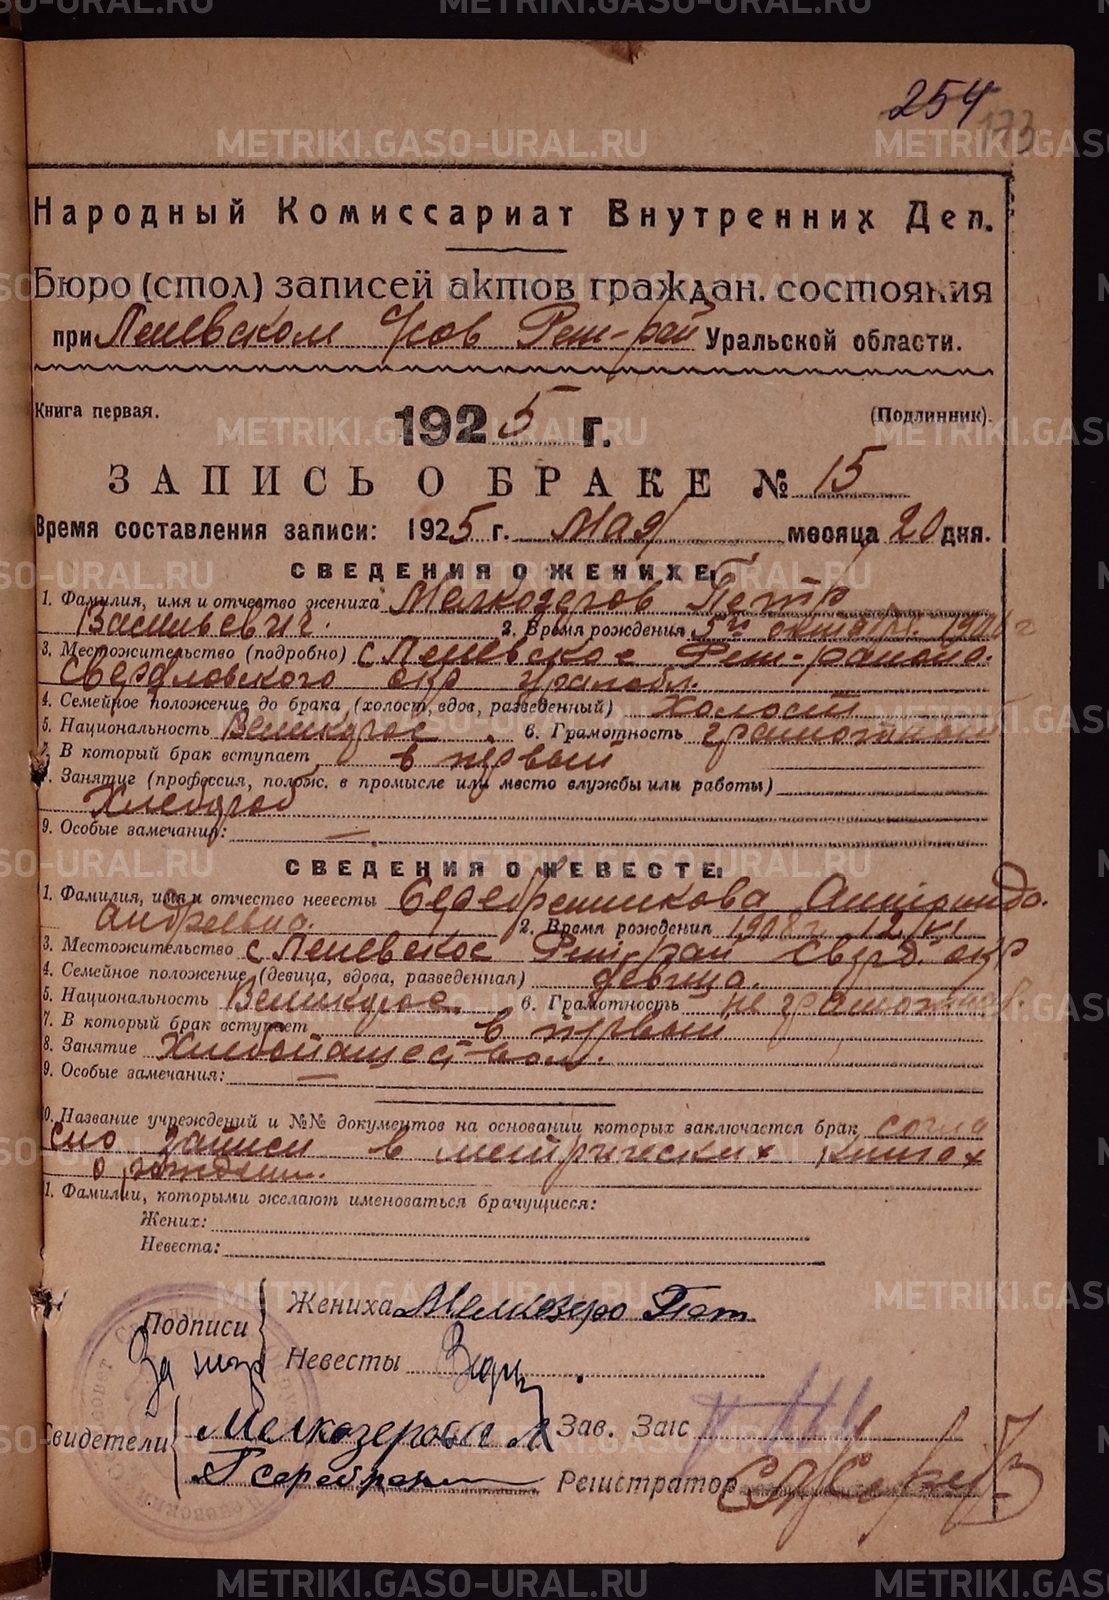 254
173
Народный Комиссариат Внутренних Дел.
Бюро (стол) записей актов граждан. состояния
при Леневском Реж-рай Уральской области.
Книга первая. (Подлинник).
1925 г.
ЗАПИСЬ О БРАКЕ № 15
Время составления записи: 1925 г. Мая месяца 20 дня.
СВЕДЕНИЯ О ЖЕНИХЕ.
1. Фамилия, имя и отчество жениха Мелкозеров Петр
Васильевич. 2. Время рождения 5го октября
3. Местожительство (подробно) с Леневское Реж-района.
Свердловского окр Уралобл.
4. Семейное положение до брака (холост, вдов, разведенный) холост
5. Национальность Великорос 6. Грамотность грамотный
7. В который брак вступает в первый
8. Занятие (профессия, полож. в промысле или место службы или работы)
Хлебороб
9. Особые замечания: —
СВЕДЕНИЯ О НЕВЕСТЕ.
1. Фамилия, имя и отчество невесты Серебренникова
Андреевна. 2. Время рождения 1908 г. 12
3. Местожительство с Леневское Реж-рай Сверд. окр
4. Семейное положение (девица, вдова, разведенная) девица.
5. Национальность Великорос. 6. Грамотность не грамотная.
7. В который брак вступает в первый
8. Занятие Хлебопашеством.
9. Особые замечания: —
10. Название учреждений и №№ документов на основании которых заключается брак согла
сно записи в метрических книгах
о рождении.
11. Фамилии, которыми желают именоваться брачущиеся:
Жених:
Невеста:
Подписи
Жениха Мелкозеро Пет
За
Невесты
Свидетели
Мелкозеров
Зав. Загс
Серебрен
Регистратор
METRIKI.GASO-URAL.RU